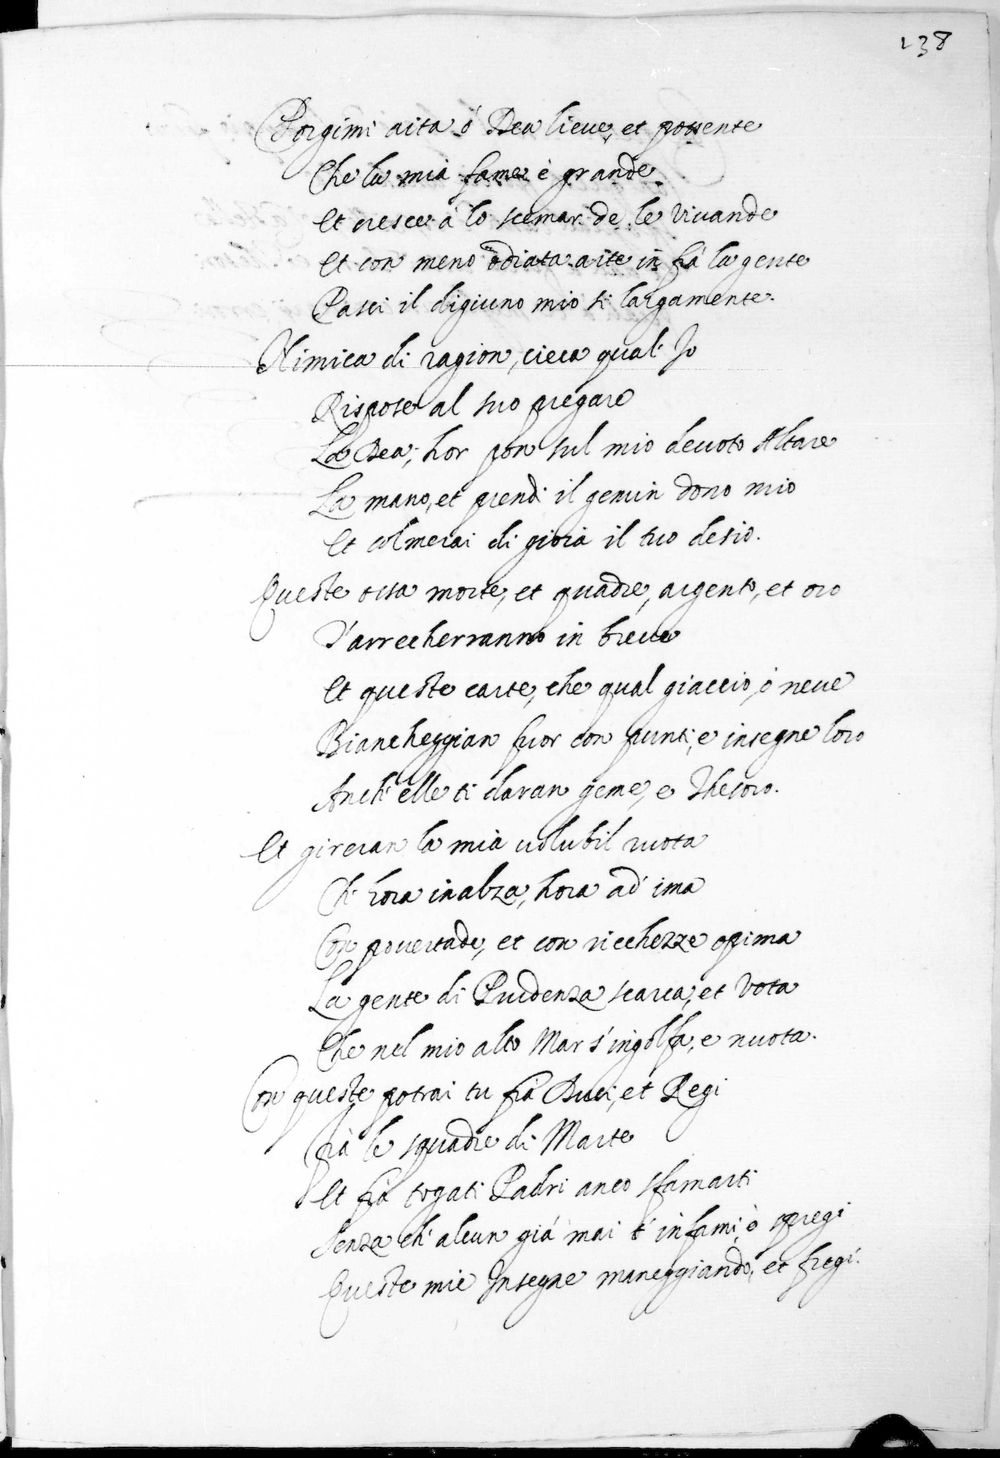 138
Porgimi aita ò Dea lieue, et possente
Che la mia fame è grande
Et cresce à lo scemar de le viuande
Et con meno odiata aite in frà la gente
Pasci il digiuno mio si largamente.
Nimica di ragion, cieca qual' Io
Rispose al suo pregare
La Dea; hor pon sul mio deuoto Altare
La mano, et prendi il gemin dono mio
Et colmerai di gioia il tuo desio.
Queste ossa morte, et quadre, argento, et oro
T'arrecherranno in breue
Et queste carte, che qual giaccio, ò neue
Biancheggian fuor con punti, e insegne loro
Anch' elle ti daran geme, e Thesoro.
Et gireran la mia volubil ruota
Ch' hora inalza, hora ad ima
Con pouertade, et con ricchezze opima
La gente di Prudenza scarca, et vota
Che nel mio alto Mar s'ingolfa, e nuota.
Con queste potrai tu frà Duci, et Regi
Frà le squadre di Marte
Et frà togati Padri anco sfamarti
Senza ch' alcun già mai t'infami, ò spregi
Queste mie Insegne maneggiando, et fregi.